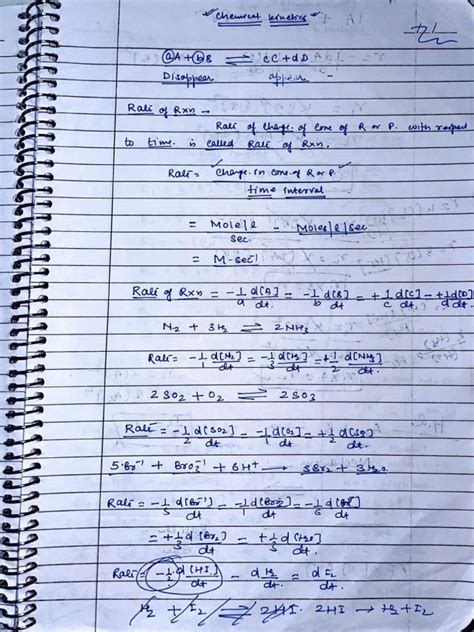 Chemical kinetics
aA + bB ⇌ cC + dD
Disappear appear
Rate of Rxn -
Rate of change of conc of R or P. with respect
to time is called Rate of Rxn.
Rate = Change in conc. of R or P.
time interval
= Mole/l - Moles/l/sec
sec.
= M-sec⁻¹
Rate of Rxn = -1/a d[A]/dt = -1/b d[B]/dt = +1/c d[C]/dt = +1/d d[D]/dt
N₂ + 3H₂ ⇌ 2NH₃
Rate = -1/1 d[N₂]/dt = -1/3 d[H₂]/dt = +1/2 d[NH₃]/dt
2SO₂ + O₂ ⇌ 2SO₃
Rate = -1/2 d[SO₂]/dt = -1/1 d[O₂]/dt = +1/2 d[SO₃]/dt
5Br⁻¹ + BrO₃⁻¹ + 6H⁺ → 3Br₂ + 3H₂O
Rate = -1/5 d[Br⁻¹]/dt = -1/1 d[BrO₃⁻]/dt = -1/6 d[H⁺]/dt
= +1/3 d[Br₂]/dt = +1/3 d[H₂O]/dt
Rate = -1/2 d[HI]/dt = d H₂/dt = d I₂/dt
H₂ + I₂ ⇌ 2HI. 2HI → H₂ + I₂